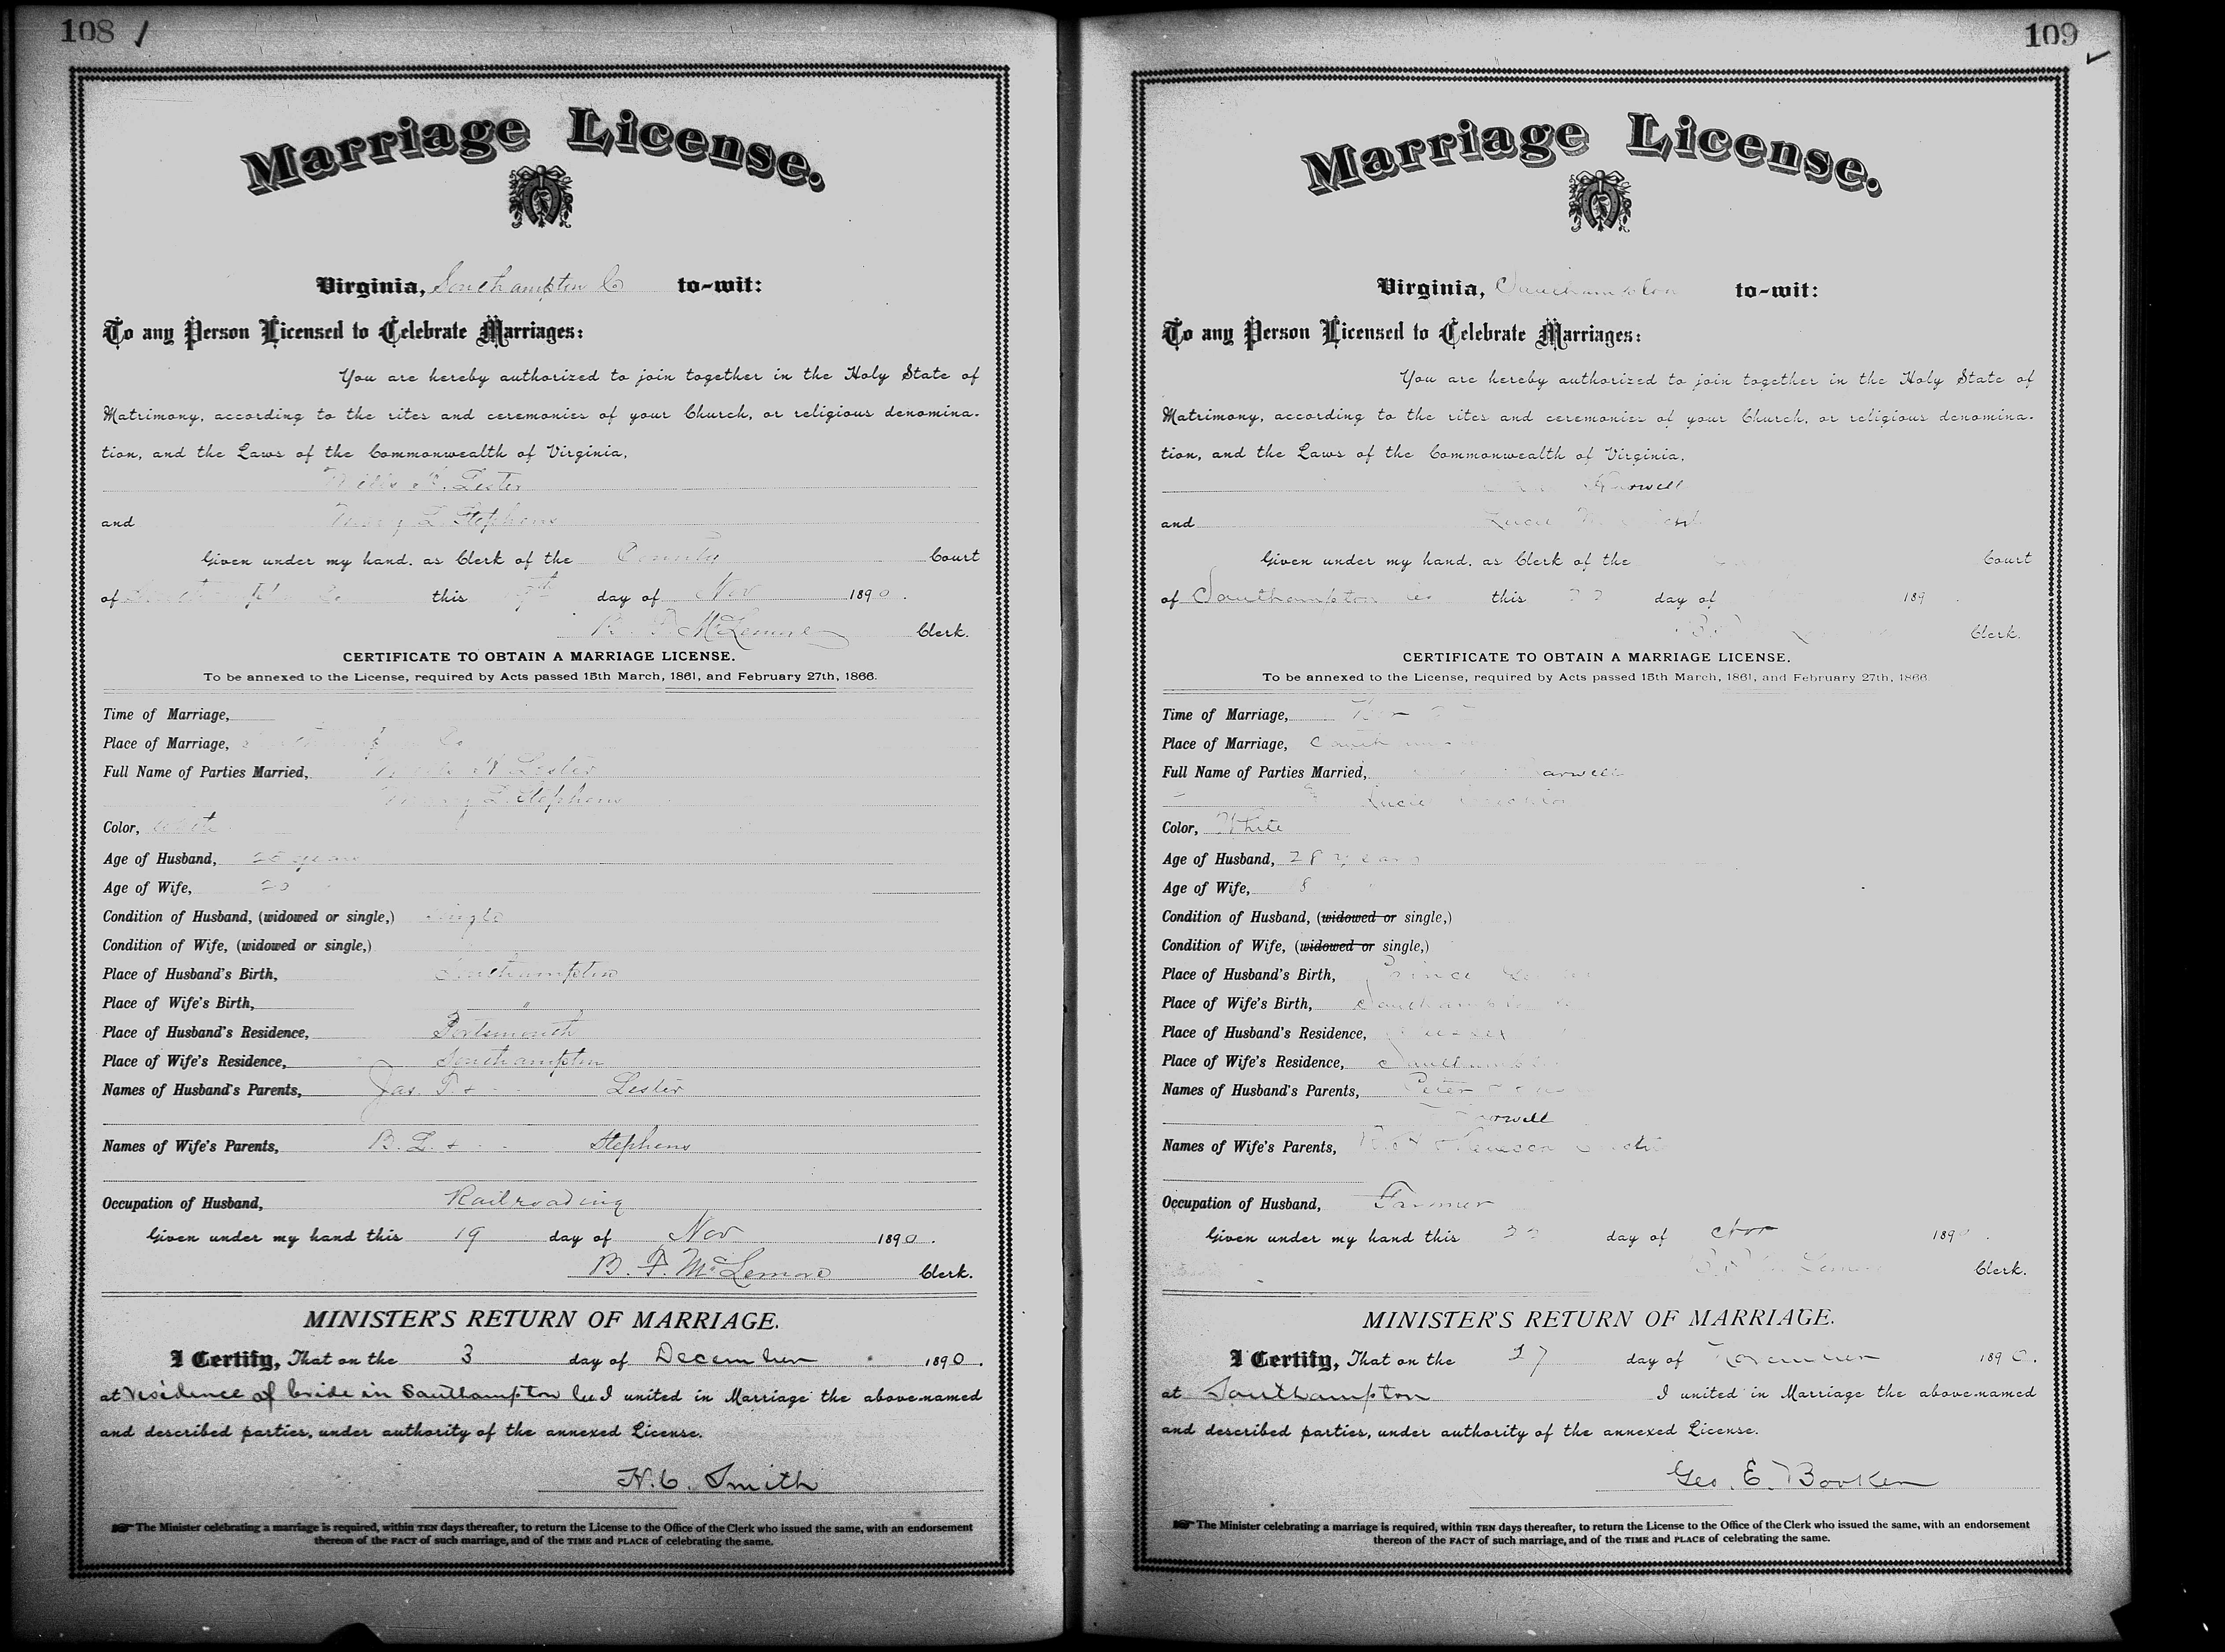 108
Marriage License.
Virginia, Southampton Co to-wit:
To any Person Licensed to Celebrate Marriages:
You are hereby authorized to join together in the Holy State of
Matrimony, according to the rites and ceremonies of your Church, or religious denomina-
tion, and the Laws of the Commonwealth of Virginia,
Mills Lester
and Mary L. Stephens
Given under my hand, as Clerk of the County Court
of Southampton Co this day of Nov 1890.
B. F. McLemore Clerk.
CERTIFICATE TO OBTAIN A MARRIAGE LICENSE.
To be annexed to the License, required by Acts passed 15th March, 1861, and February 27th, 1866.
Time of Marriage,
Place of Marriage, Southampton Co
Full Name of Parties Married, Mills Lester
Mary L. Stephens
Color, White
Age of Husband, years
Age of Wife, 20
Condition of Husband, (widowed or single,) Single
Condition of Wife, (widowed or single,)
Place of Husband's Birth, Southampton
Place of Wife's Birth, "
Place of Husband's Residence, Portsmouth
Place of Wife's Residence, Southampton
Names of Husband's Parents, Jas. T. + - - Lester
Names of Wife's Parents, B. L. + - - Stephens
Occupation of Husband, Railroading
Given under my hand this 19 day of Nov 1890.
B. F. McLemore Clerk.
MINISTER'S RETURN OF MARRIAGE.
I Certify, That on the 3 day of December 1890.
at residence of bride in Southampton Co I united in Marriage the above-named
and described parties, under authority of the annexed License.
H. C. Smith
The Minister celebrating a marriage is required, within TEN days thereafter, to return the License to the Office of the Clerk who issued the same, with an endorsement
thereon of the FACT of such marriage, and of the TIME and PLACE of celebrating the same.
109
Marriage License.
Virginia, Southampton to-wit:
To any Person Licensed to Celebrate Marriages:
You are hereby authorized to join together in the Holy State of
Matrimony, according to the rites and ceremonies of your Church, or religious denomina-
tion, and the Laws of the Commonwealth of Virginia,
and
Given under my hand, as Clerk of the Court
of Southampton Co this day of 189
Clerk.
CERTIFICATE TO OBTAIN A MARRIAGE LICENSE.
To be annexed to the License, required by Acts passed 15th March, 1861, and February 27th, 1866.
Time of Marriage, Nov
Place of Marriage, Southampton
Full Name of Parties Married,
Color, White
Age of Husband, 28 years
Age of Wife,
Condition of Husband, (widowed or single,)
Condition of Wife, (widowed or single,)
Place of Husband's Birth, Prince
Place of Wife's Birth, Southampton
Place of Husband's Residence, Sussex
Place of Wife's Residence, Southampton
Names of Husband's Parents, Peter
Names of Wife's Parents,
Occupation of Husband, Farmer
Given under my hand this day of Nov 189
Clerk.
MINISTER'S RETURN OF MARRIAGE.
I Certify, That on the 27 day of November 1890.
at Southampton I united in Marriage the above-named
and described parties, under authority of the annexed License.
Geo. E. Booker
The Minister celebrating a marriage is required, within TEN days thereafter, to return the License to the Office of the Clerk who issued the same, with an endorsement
thereon of the FACT of such marriage, and of the TIME and PLACE of celebrating the same.